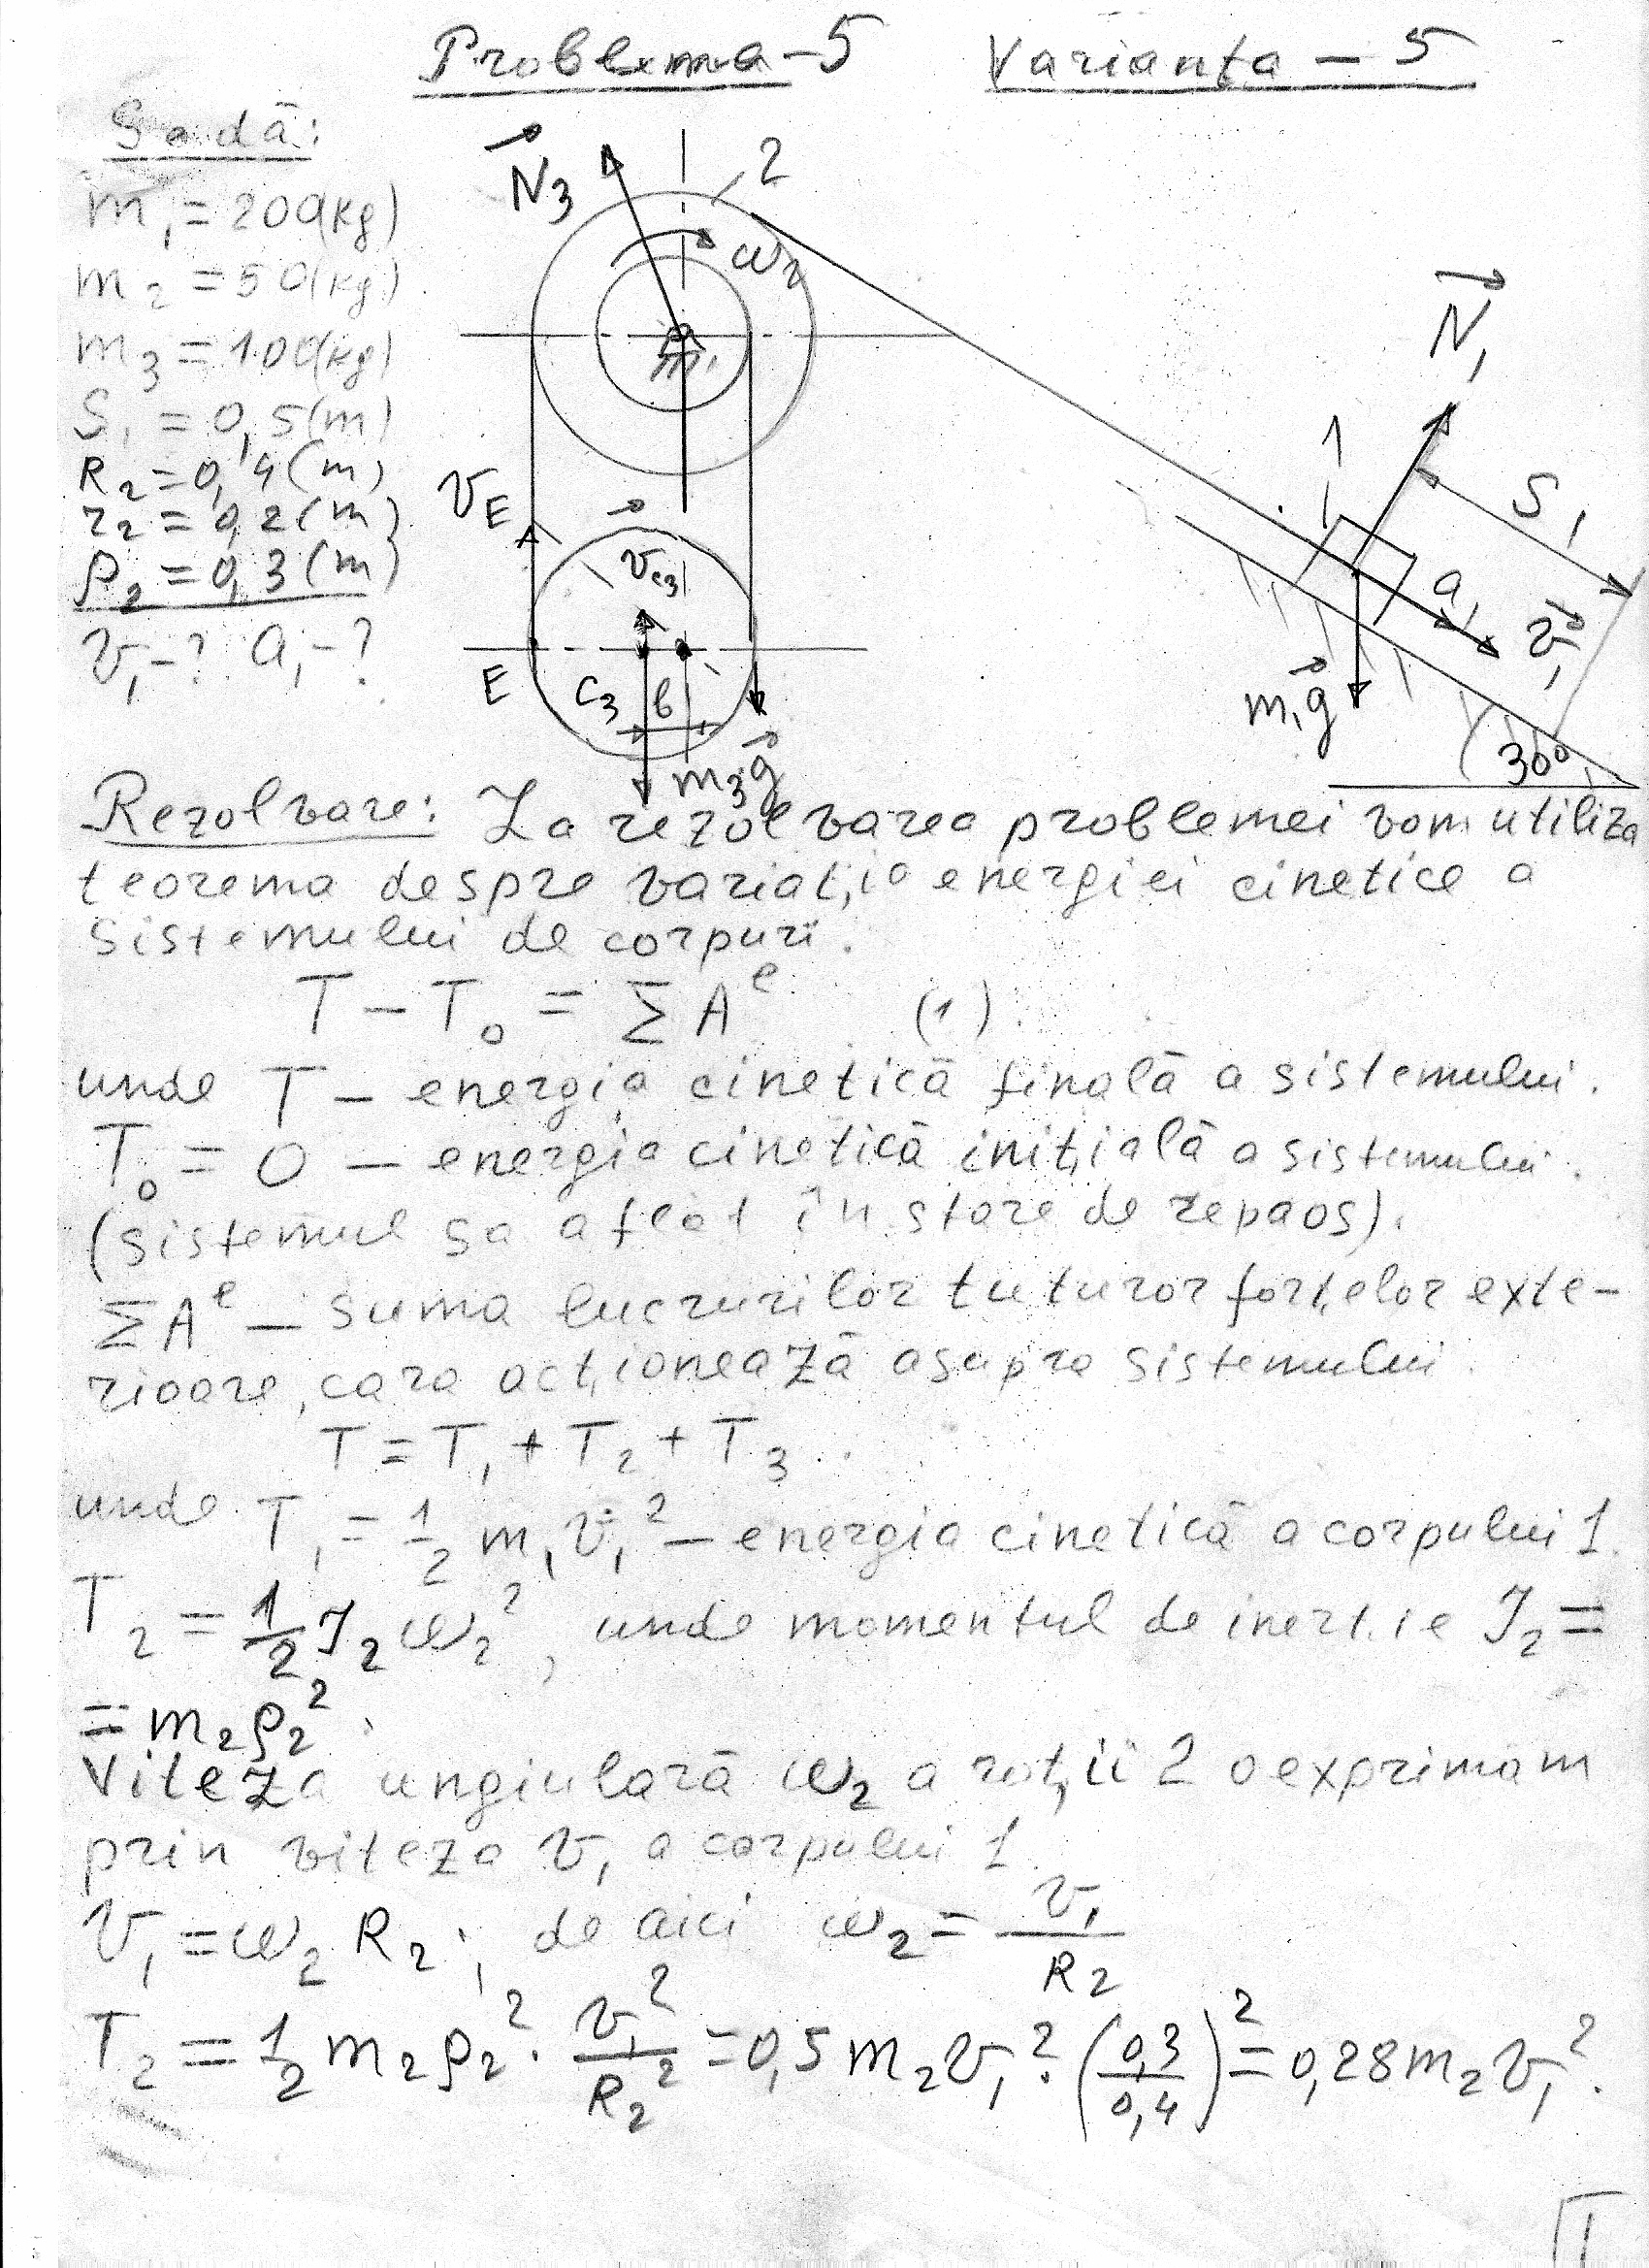 Problema-5 Varianta - 5
Se dă:
m₁ = 200(kg)
m₂ = 50(kg)
m₃ = 100(kg)
S₁ = 0,5(m)
R₂ = 0,4(m)
r₂ = 0,2(m)
ρ₂ = 0,3(m)
v₁-? a₁-?
N₃
2
ω₂
N₁
1
S₁
a₁
v₁
m₁g
30°
v_E
v_c₃
E
C₃
b
m₃g
Rezolvare: La rezolvarea problemei vom utiliza
teorema despre variația energiei cinetice a
sistemului de corpuri.
T - T₀ = ΣAᵉ (1)
unde T - energia cinetică finală a sistemului.
T₀ = 0 - energia cinetică inițială a sistemului.
(sistemul sa aflat în stare de repaos).
ΣAᵉ - suma lucrurilor tuturor forțelor exte-
rioare, care acționează asupra sistemului.
T = T₁ + T₂ + T₃.
unde T₁ = 1/2 m₁v₁² - energia cinetică a corpului 1.
T₂ = 1/2 J₂ω₂², unde momentul de inerție J₂ =
= m₂ρ₂².
Viteza unghiulară ω₂ a roții 2 o exprimăm
prin viteza v₁ a corpului 1.
v₁ = ω₂R₂; de aici ω₂ = v₁/R₂
T₂ = 1/2 m₂ρ₂² · v₁²/R₂² = 0,5m₂v₁² · (0,3/0,4)² = 0,28m₂v₁².